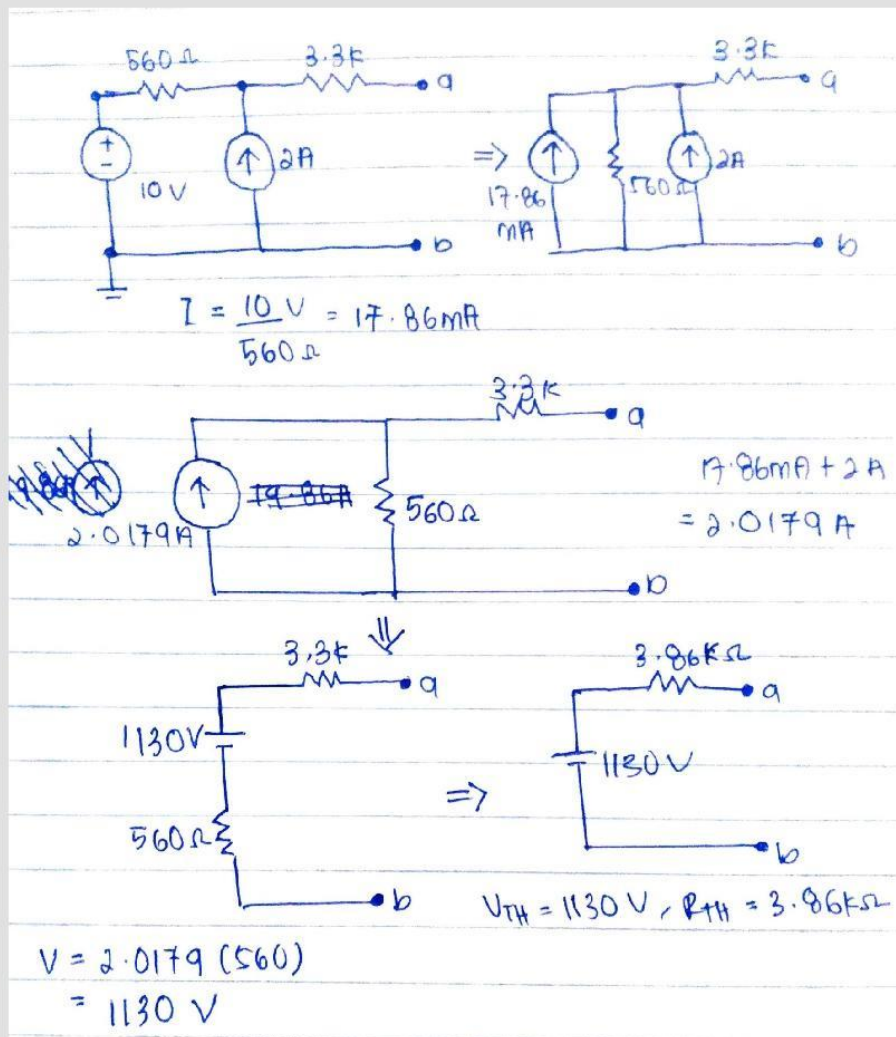 560Ω 3.3K a
3.3K a
+
-
10V
2A
b
=>
17.86
mA
560Ω
2A
b
I = 10 V = 17.86mA
560Ω
3.3K
a
2.0179A
560Ω
17.86mA + 2A
= 2.0179 A
b
3.3K
a
1130V
560Ω
b
=>
3.86KΩ
a
1130V
b
VTH = 1130 V, RTH = 3.86KΩ
V = 2.0179 (560)
= 1130 V